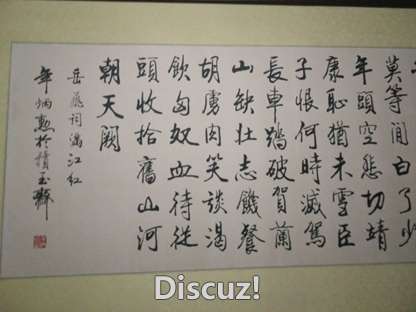 莫等間白了少
年頭空悲切靖
康恥猶未雪臣
子恨何時滅駕
長車踏破賀蘭
山缺壯志饑餐
胡虜肉笑談渴
飲匈奴血待從
頭收拾舊山河
朝天闕
岳飛詞滿江紅
華炳勲於積玉軒
Discuz!